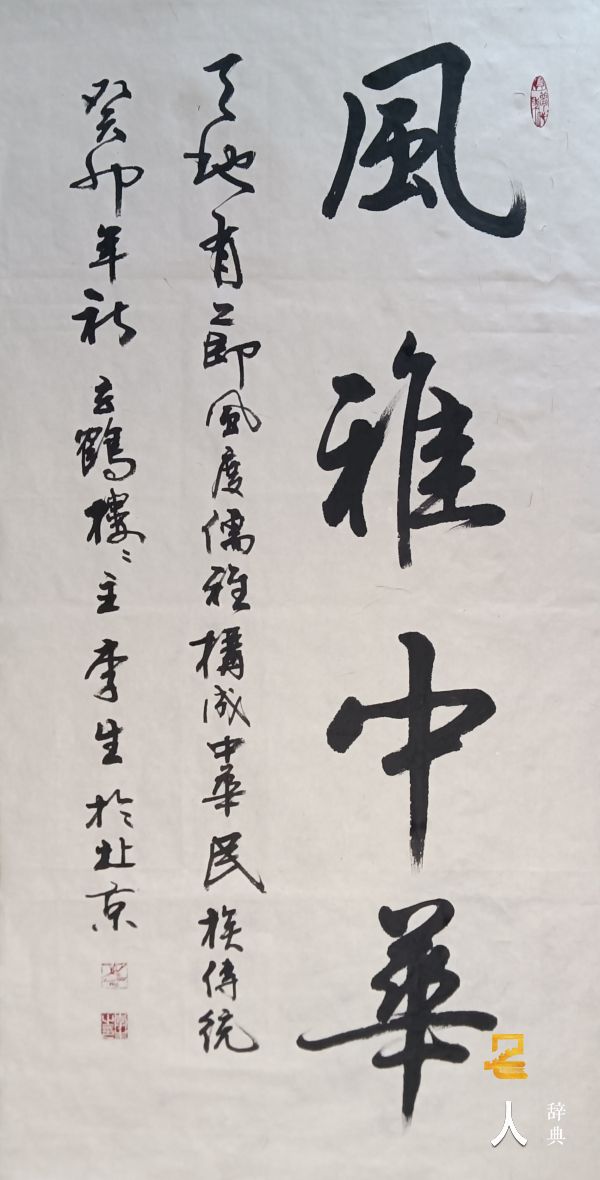 風雅中華
天地有節風度儒雅構成中華民族傳統
癸卯年秋 雲鶴樓主 李生 於北京
名人
辞典